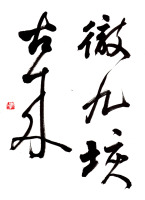 徹九垓
古来